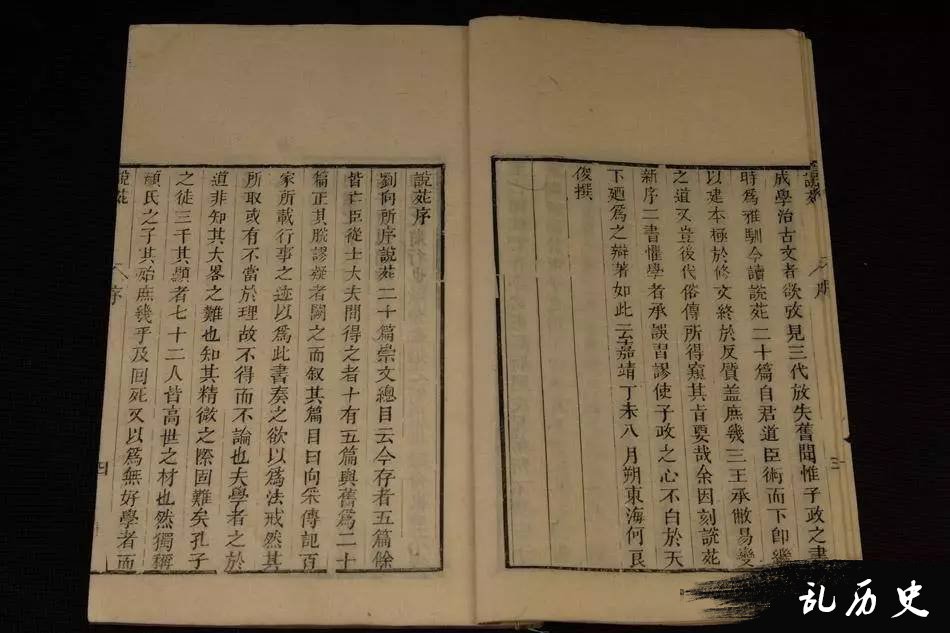 說苑
成學治古文者欲攷見三代放失舊聞惟子政之書
時爲雅馴今讀說苑二十篇自君道臣術而下卽繼
以建本極於修文終於反質盖庶幾三王承敝易變
之道又豈後代俗傳所得窺其肯要哉余因刻說苑
新序二書懼學者承誤習謬使子政之心不白於天
下廼爲之辯著如此云嘉靖丁未八月朔東海何良
俊撰
說苑序
劉向所序說苑二十篇崇文總目云今存者五篇餘
皆亡臣從士大夫間得之者十有五篇與舊爲二十
篇正其脫謬疑者闕之而叙其篇目曰向采傳記百
家所載行事之迹以爲此書奏之欲以爲法戒然其
所取或有不當於理故不得而不論也夫學者之於
道非知其大畧之難也知其精微之際固難矣孔子
之徒三千其顯者七十二人皆高世之材也然獨稱
顏氏之子其殆庶幾乎及回死又以爲無好學者而
說苑
序
四
乱历史